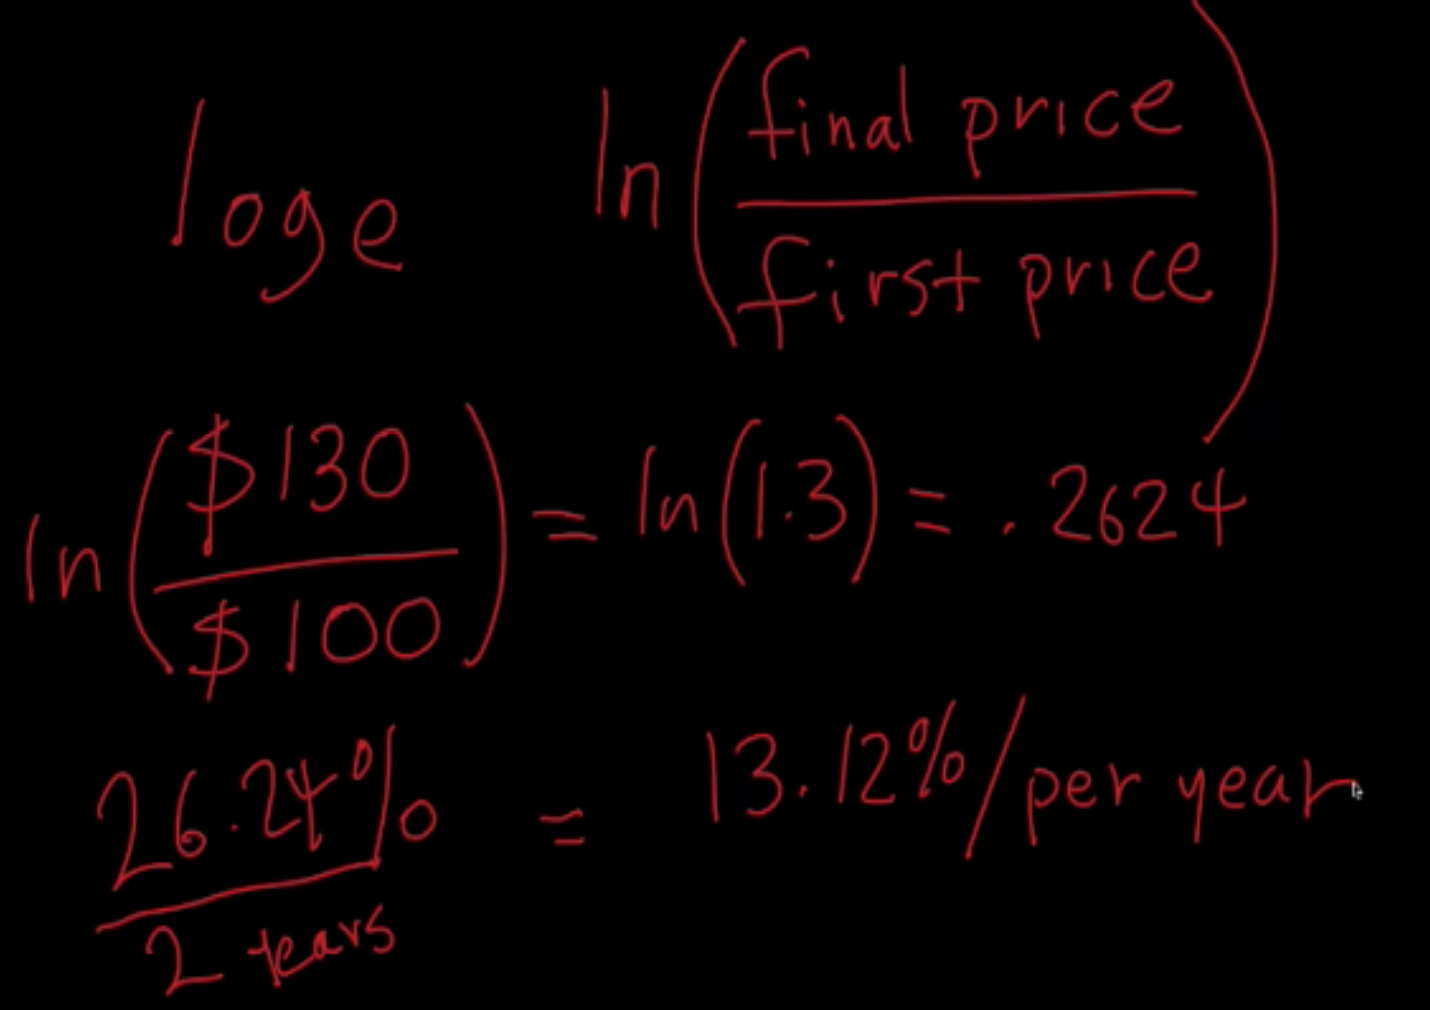 loge ln(final price / first price)
ln($130 / $100) = ln(1.3) = .2624
26.24% / 2 years = 13.12% / per year